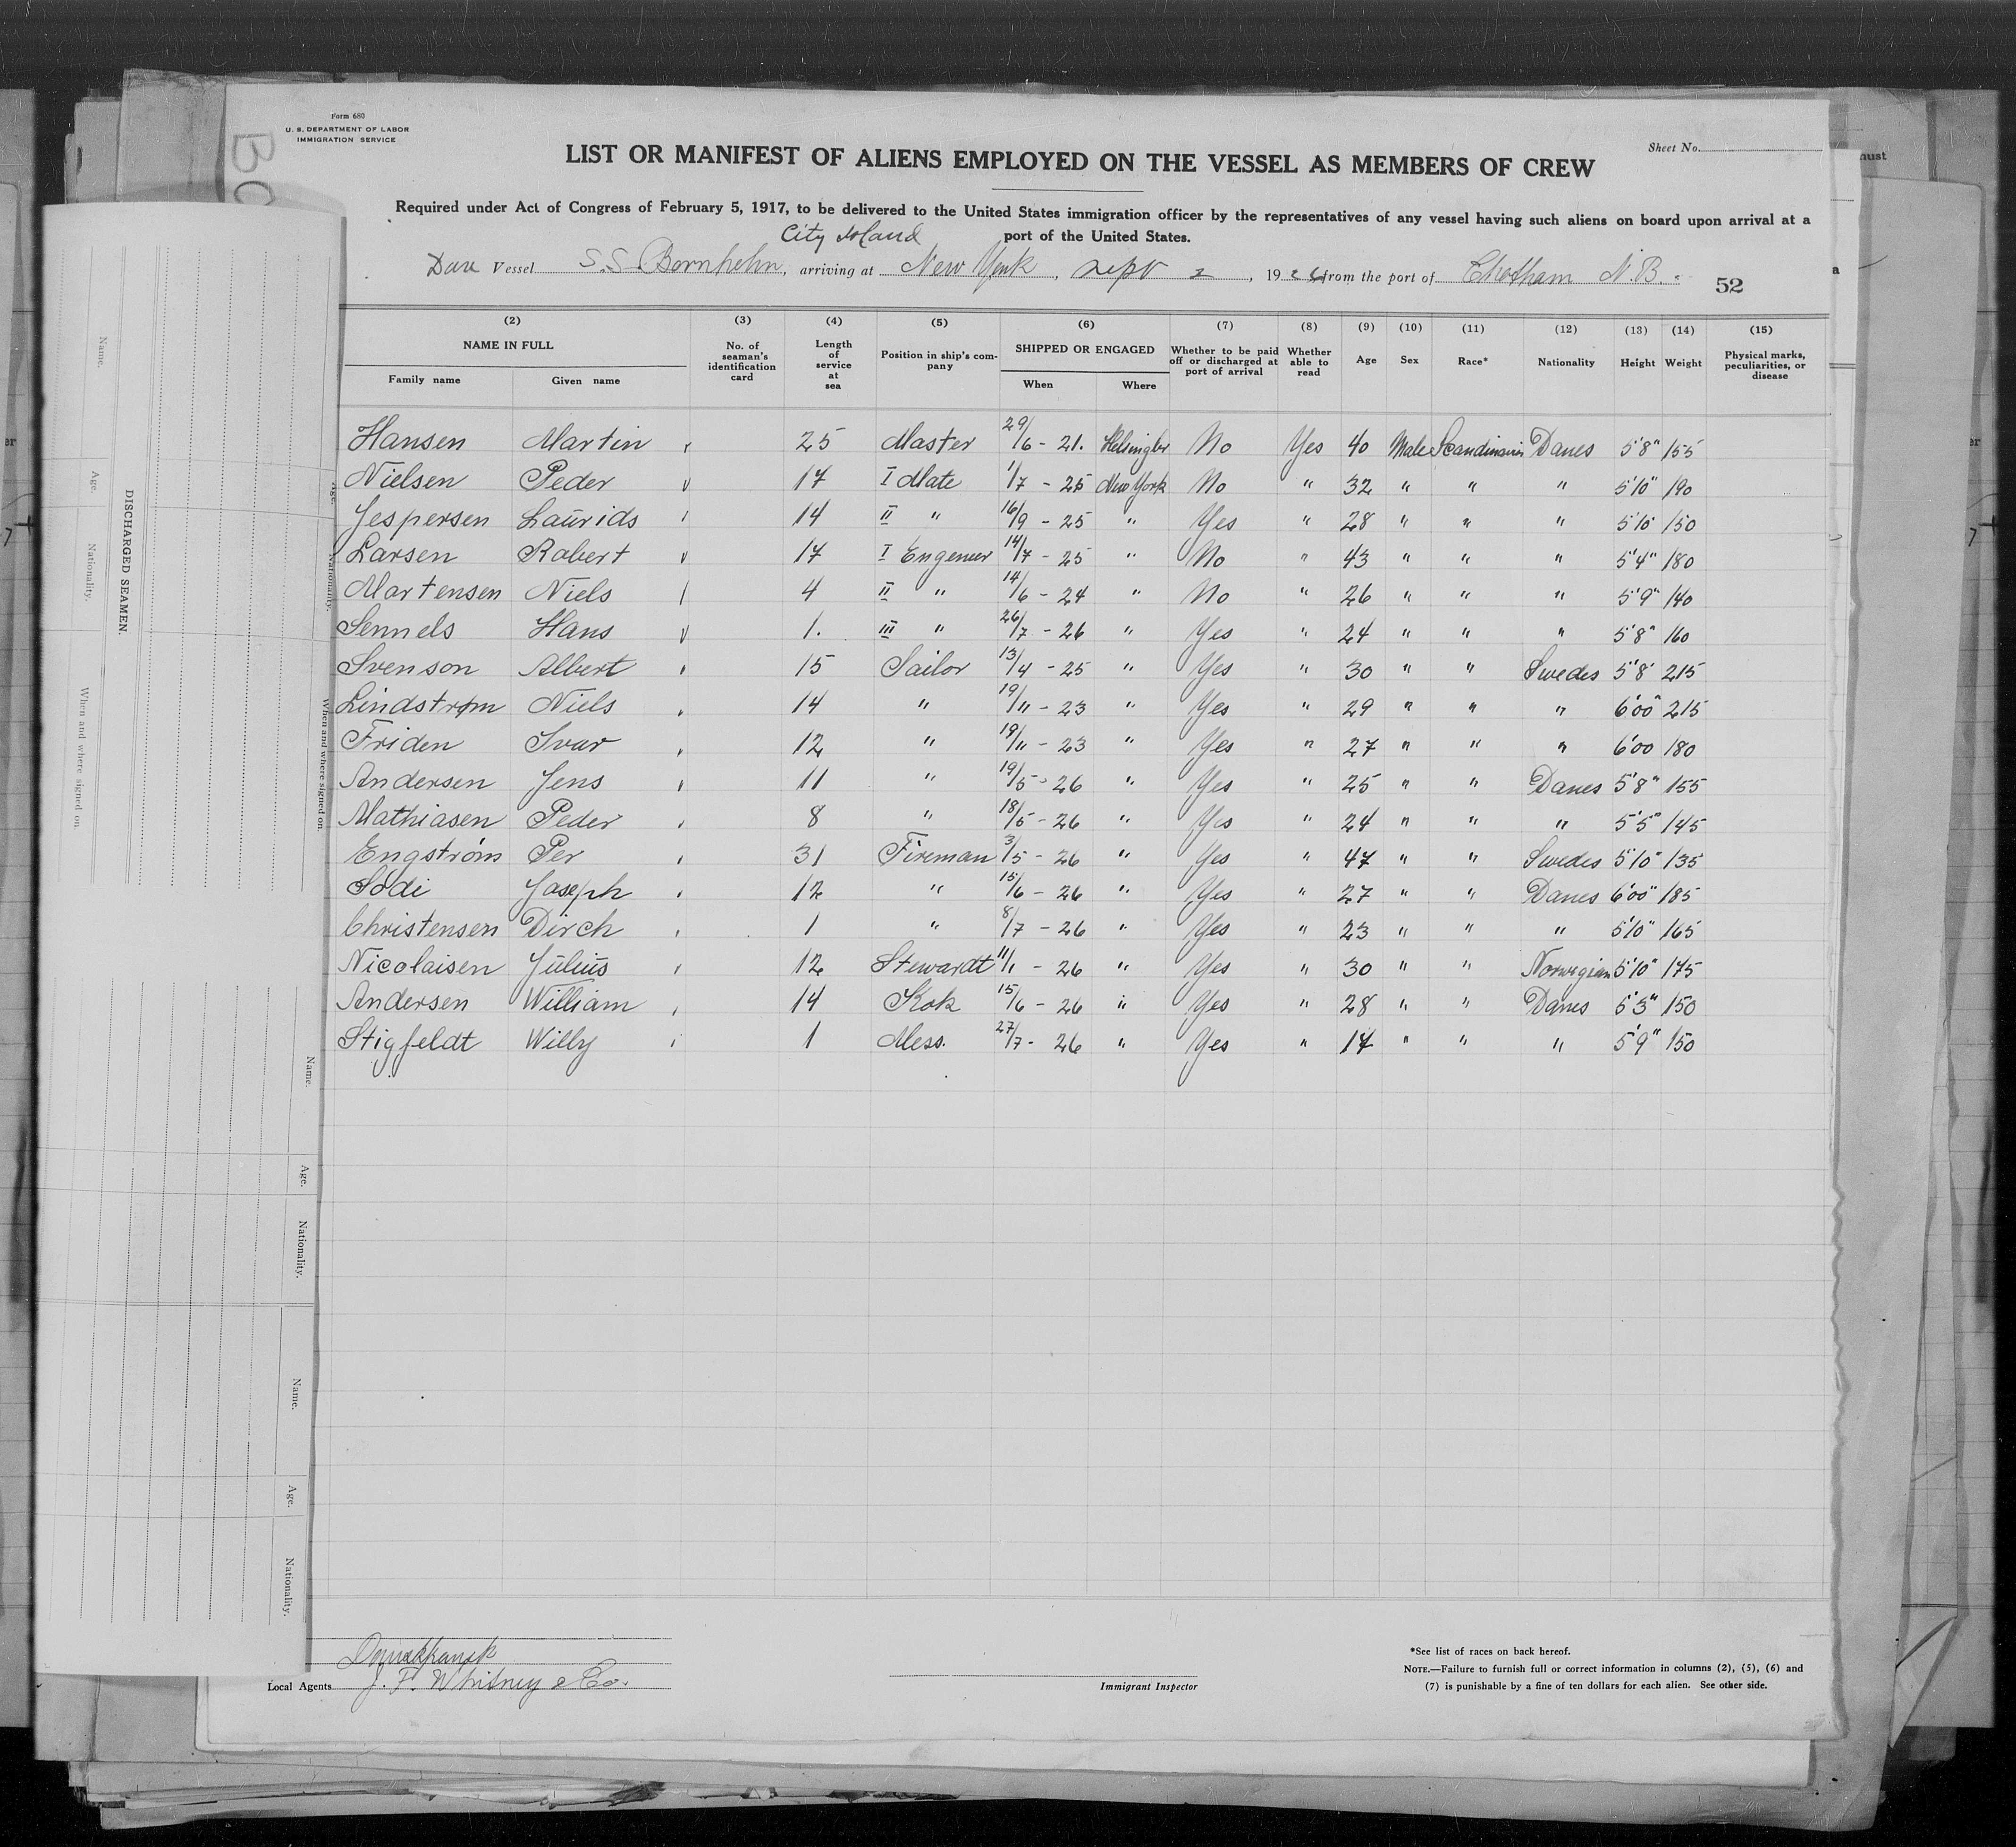 Form 680
U. S. DEPARTMENT OF LABOR
IMMIGRATION SERVICE
Sheet No.
LIST OR MANIFEST OF ALIENS EMPLOYED ON THE VESSEL AS MEMBERS OF CREW
Required under Act of Congress of February 5, 1917, to be delivered to the United States immigration officer by the representatives of any vessel having such aliens on board upon arrival at a
City Island port of the United States.
Vessel S.S. Bornholm, arriving at New York, Sept 2, 1926 from the port of Chatham N.B. 52
(2) (3) (4) (5) (6) (7) (8) (9) (10) (11) (12) (13) (14) (15)
NAME IN FULL No. of seaman's identification card Length of service at sea Position in ship's company SHIPPED OR ENGAGED Whether to be paid off or discharged at port of arrival Whether able to read Age Sex Race* Nationality Height Weight Physical marks, peculiarities, or disease
Family name Given name When Where
Hansen Martin 25 Master 29/6 - 21. Helsingør No Yes 40 Male Scandinavien Danes 5'8" 155
Nielsen Peder 17 I Mate 1/7 - 25 New York No " 32 " " " 5'10" 190
Jespersen Laurids 14 II " 16/9 - 25 " Yes " 28 " " " 5'10" 150
Larsen Robert 17 I Engeneer 14/7 - 25 " No " 43 " " " 5'4" 180
Martensen Niels 4 II " 14/6 - 24 " No " 26 " " " 5'9" 140
Sennels Hans 1. III " 26/7 - 26 " Yes " 24 " " " 5'8" 160
Svenson Albert 15 Sailor 13/4 - 25 " Yes " 30 " " Swedes 5'8" 215
Lindstrøm Niels 14 " 19/11 - 23 " Yes " 29 " " " 6'00" 215
Friden Ivar 12 " 19/11 - 23 " Yes " 27 " " " 6'00 180
Andersen Jens 11 " 19/5 - 26 " Yes " 25 " " Danes 5'8" 155
Mathiasen Peder 8 " 18/5 - 26 " Yes " 24 " " " 5'5" 145
Engström Per 31 Fireman 3/5 - 26 " Yes " 47 " " Swedes 5'10" 135
Sodi Joseph 12 " 15/6 - 26 " Yes " 27 " " Danes 6'00" 185
Christensen Dirch 1 " 8/7 - 26 " Yes " 23 " " " 5'10" 165
Nicolaisen Julius 12 Stewardt 11/1 - 26 " Yes " 30 " " Norwegian 5'10" 175
Andersen William 14 Kok 15/6 - 26 " Yes " 28 " " Danes 5'3" 150
Stigfeldt Willy 1 Mess. 27/7 - 26 " Yes " 17 " " " 5'9" 150
Local Agents J. F. Whitney & Co.
Immigrant Inspector
*See list of races on back hereof.
NOTE.—Failure to furnish full or correct information in columns (2), (5), (6) and
(7) is punishable by a fine of ten dollars for each alien. See other side.
DISCHARGED SEAMEN.
Name. Age. Nationality. When and where signed on.
Age. Nationality. When and where signed on.
Name. Age. Nationality.
Name. Age. Nationality.